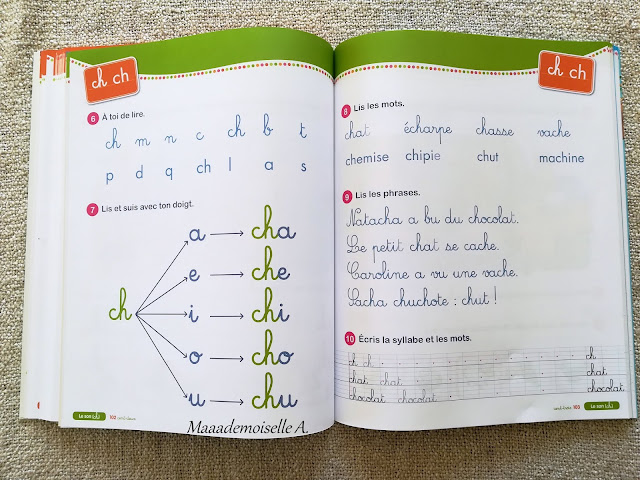 ch ch
6 À toi de lire.
ch m n c ch b t
p d q ch l a s
7 Lis et suis avec ton doigt.
ch
a cha
e che
i chi
o cho
u chu
Le son
102 cent-deux
Maaademoiselle A.
ch ch
8 Lis les mots.
chat écharpe chasse vache
chemise chipie chut machine
9 Lis les phrases.
Natacha a bu du chocolat.
Le petit chat se cache.
Caroline a vu une vache.
Sacha chuchote : chut !
10 Écris la syllabe et les mots.
ch ch ch
chat chat chat
chocolat chocolat chocolat
cent-trois 103
Le son